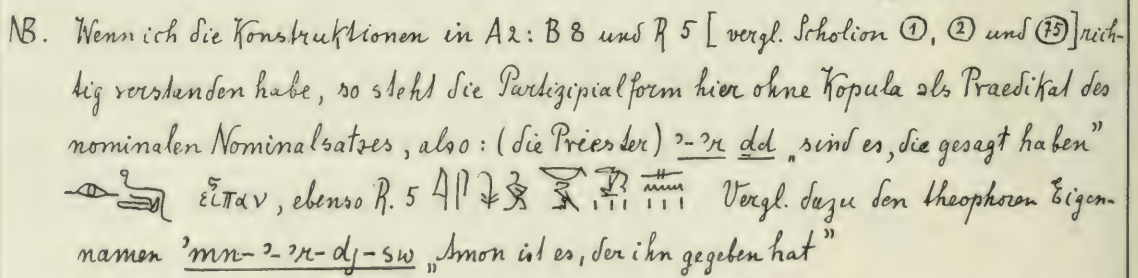 NB. Wenn ich die Konstruktionen in A 2: B 8 und R 5 [ vergl. Scholion ①, ② und ㊆] rich-
tig verstanden habe, so steht die Partizipialform hier ohne Kopula als Praedikat des
nominalen Nominalsatzes, also: (die Priester) ꜣ-ꜣr dd „sind es, die gesagt haben”
εἶπαν, ebenso R. 5 Vergl. dazu den theophoren Eigen-
namen ꜣmn-ꜣ-ꜣr-dj-sw „Amon ist es, der ihn gegeben hat”